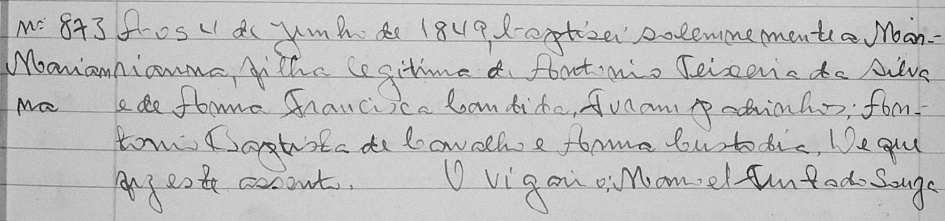 Nº 873 Aos 4 de Junho de 1849, baptizei solemnemente a Mari-
Mariam rianna, filha legitima de Antonio Teixeira da Silva
na e de Anna Francisca Candida, Foram padrinhos; An-
tonio Baptista de Carvalho e Anna Custodia, De que
fiz este assento. O Vigario; Manoel Furtado Souza